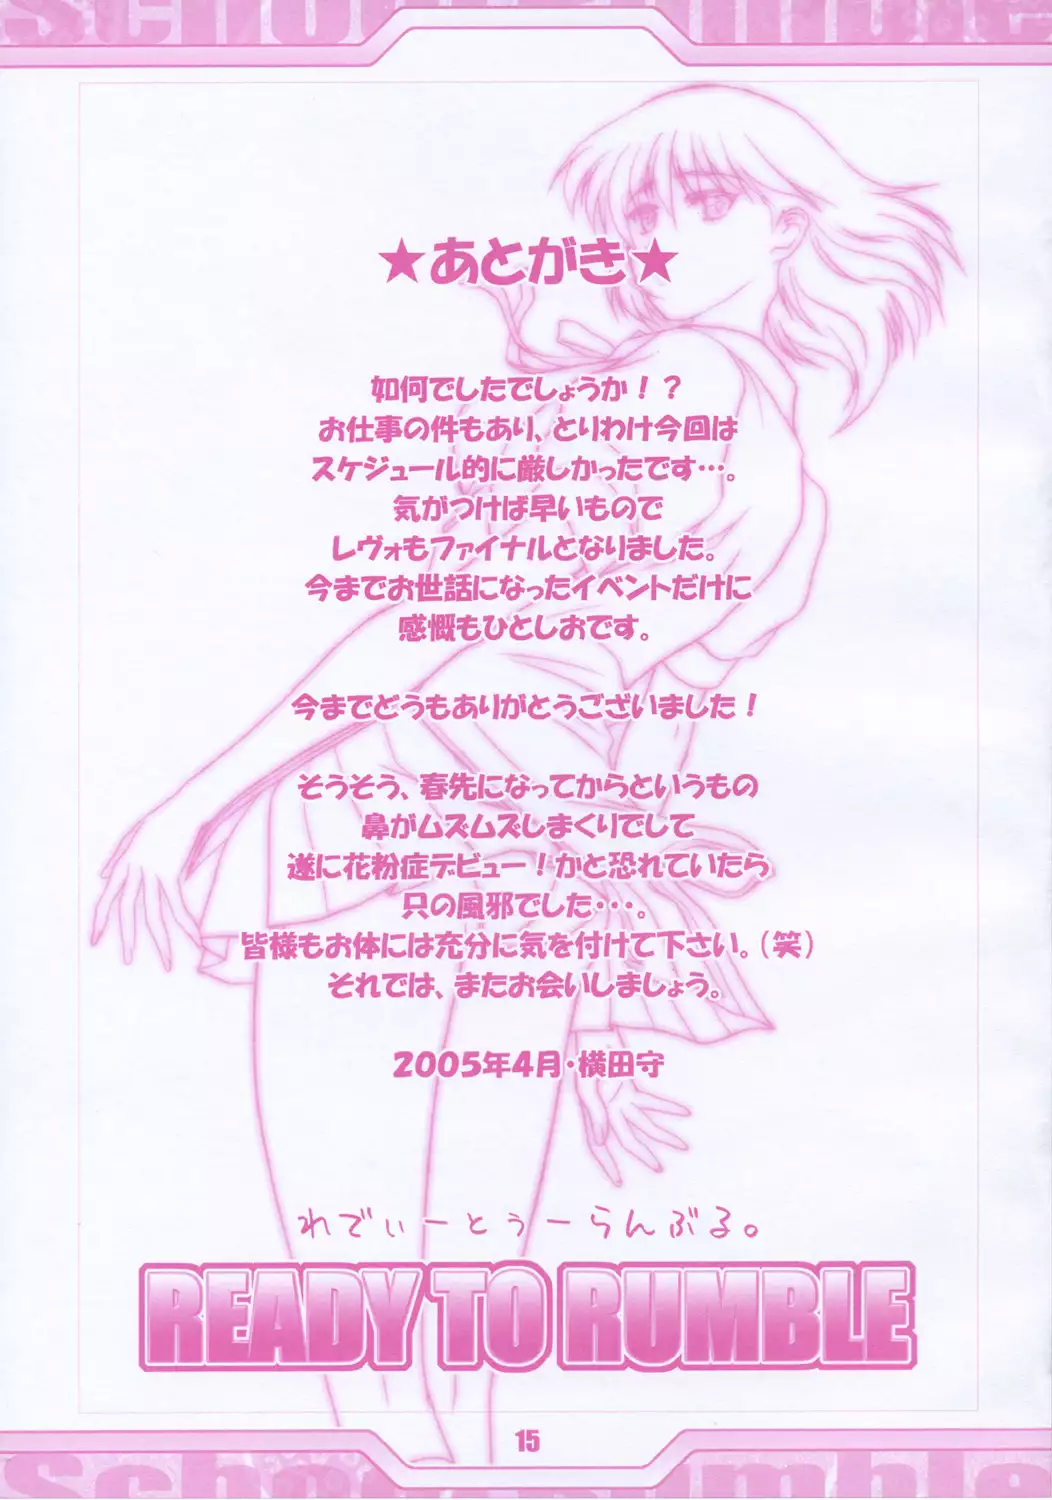 School Rumble
★あとがき★
如何でしたでしょうか！？
お仕事の件もあり、とりわけ今回は
スケジュール的に厳しかったです…。
気がつけば早いもので
レヴォもファイナルとなりました。
今までお世話になったイベントだけに
感慨もひとしおです。
今までどうもありがとうございました！
そうそう、春先になってからというもの
鼻がムズムズしまくりでして
遂に花粉症デビュー！かと恐れていたら
只の風邪でした･･･。
皆様もお体には充分に気を付けて下さい。（笑）
それでは、またお会いしましょう。
2005年4月・横田守
れでぃーとぅーらんぶる。
READY TO RUMBLE
15
School Rumble